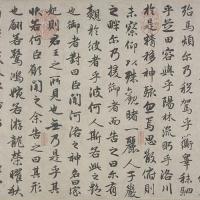 殆馬煩爾乃稅駕乎蘅皋秣駟
乎芝田容與乎陽林流眄乎洛川
於是精移神駭忽焉思散俯則
未察仰以殊觀睹一麗人于巖
之畔爾乃援御者而告之曰爾有
覿於彼者乎彼何人斯若此之艷
也御者對曰臣聞河洛之神名曰宓
妃則君王之所見也無乃是乎其
狀若何臣願聞之余告之曰其形
也翩若驚鴻婉若游龍榮曜秋